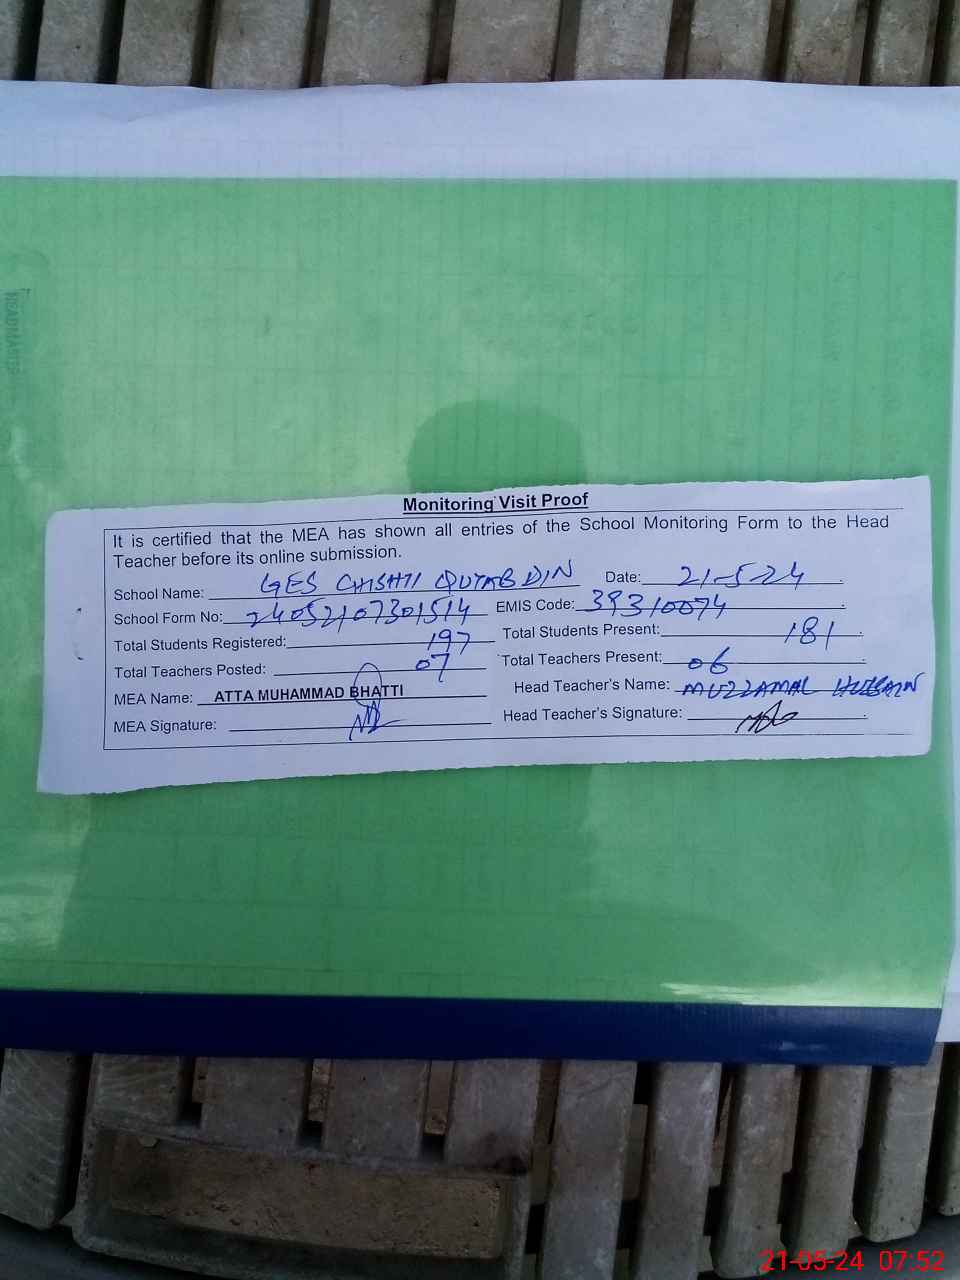 Monitoring Visit Proof
It is certified that the MEA has shown all entries of the School Monitoring Form to the Head
Teacher before its online submission.
School Name: GES CHISHTI QUTAB DIN Date: 21-5-24
School Form No: 24052107301514 EMIS Code: 39310074
Total Students Registered: 197 Total Students Present: 181
Total Teachers Posted: 07 Total Teachers Present: 06
MEA Name: ATTA MUHAMMAD BHATTI Head Teacher's Name: MUZZAMAL HUSSAIN
MEA Signature: Head Teacher's Signature:
21-05-24 07:52